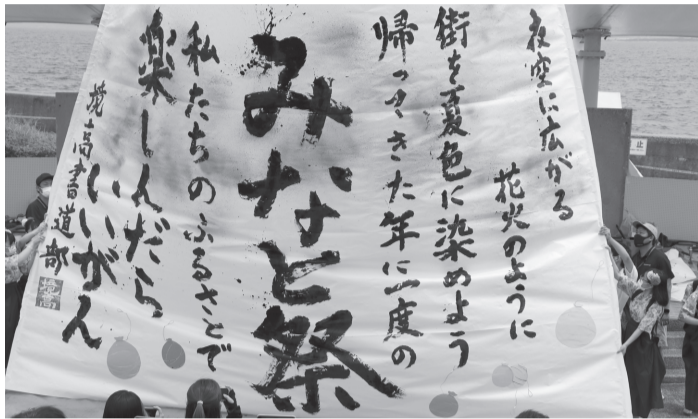 夜空に広がる
花火のように
街を夏色に染めよう
帰ってきた年に一度の
みなと祭
私たちのふるさとで
楽しんだら
いいがん
境高書道部
境高
止